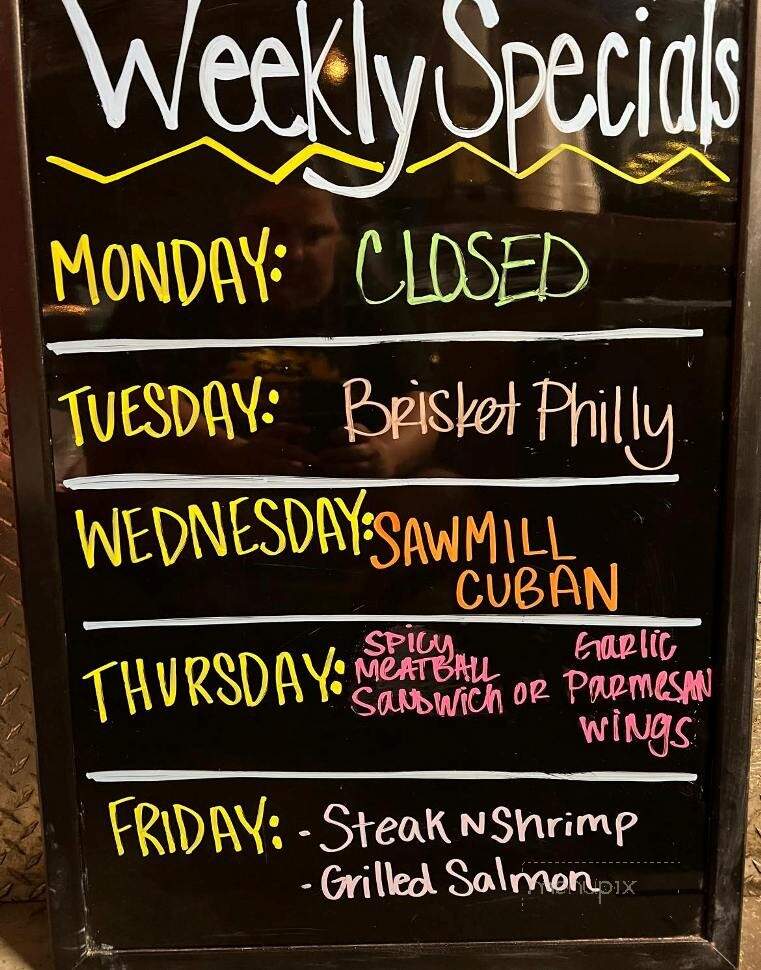 Weekly Specials
MONDAY: CLOSED
TUESDAY: Brisket Philly
WEDNESDAY: SAWMILL
CUBAN
THURSDAY: SPICY MEATBALL SANDWICH OR Garlic Parmesan Wings
FRIDAY: - Steak N Shrimp
- Grilled Salmon
menupix